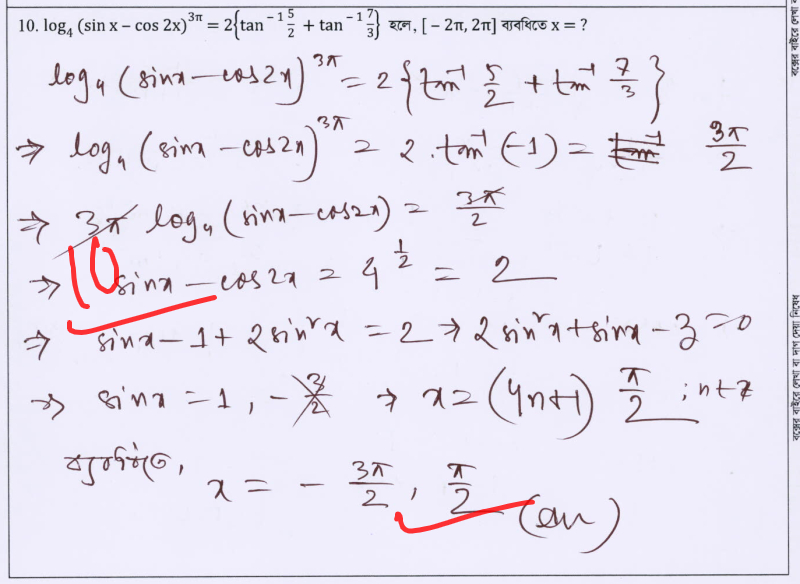 10. log₄ (sin x – cos 2x)^3π = 2{tan⁻¹ 5/2 + tan⁻¹ 7/3} হলে, [ – 2π, 2π] ব্যবধিতে x = ?
log₄ (sinx – cos2x)^3π = 2 {tan⁻¹ 5/2 + tan⁻¹ 7/3}
⇒ log₄ (sinx – cos2x)^3π = 2 . tan⁻¹ (–1) = 3π/2
⇒ 3π log₄ (sinx – cos2x) = 3π/2
10
⇒ sinx – cos2x = 4^1/2 = 2
⇒ sinx – 1 + 2sin²x = 2 ⇒ 2sin²x + sinx – 3 = 0
⇒ sinx = 1, – 3/2 ⇒ x = (4n+1) π/2 ; n ∈ Z
ব্যবধিতে,
x = – 3π/2, π/2 (ans)
বক্সের বাইরে লেখা বা দাগ দেয়া নিষেধ